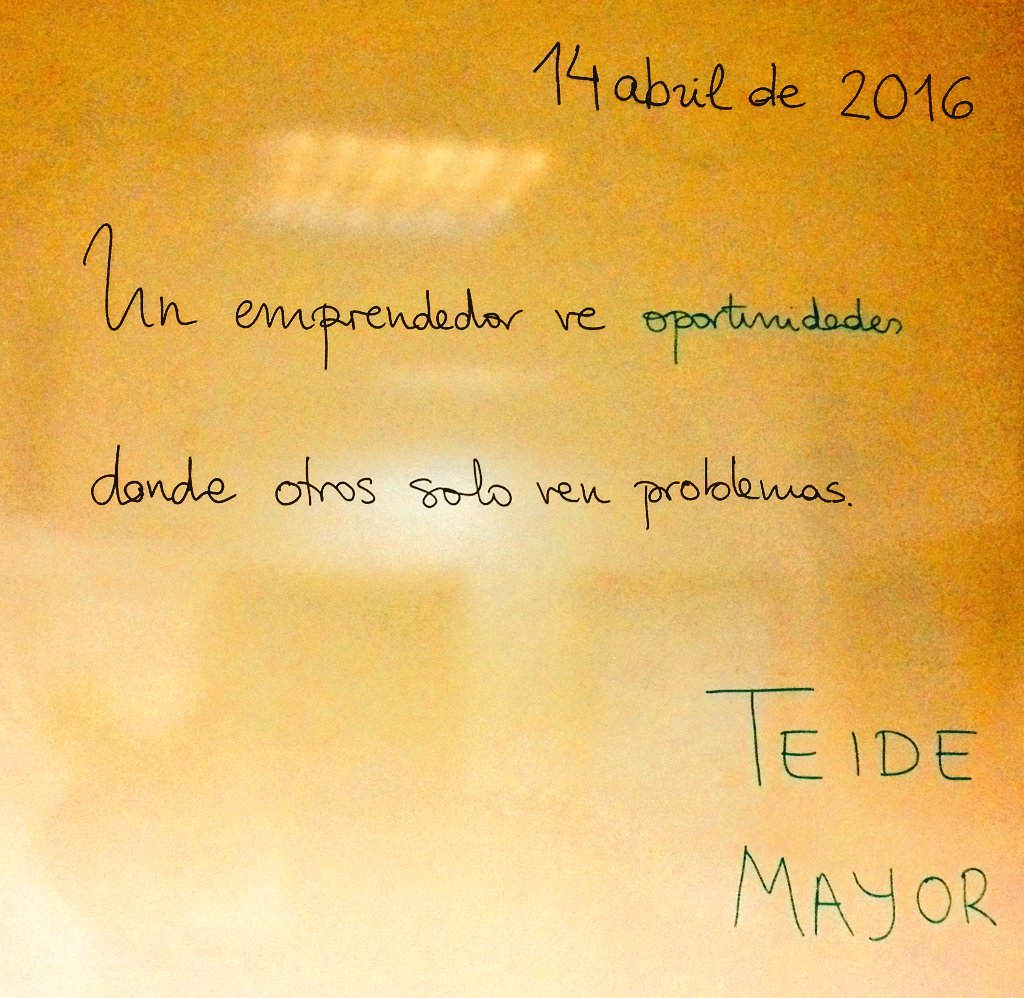 14 abril de 2016
Un emprendedor ve oportunidades
donde otros solo ven problemas.
TEIDE
MAYOR